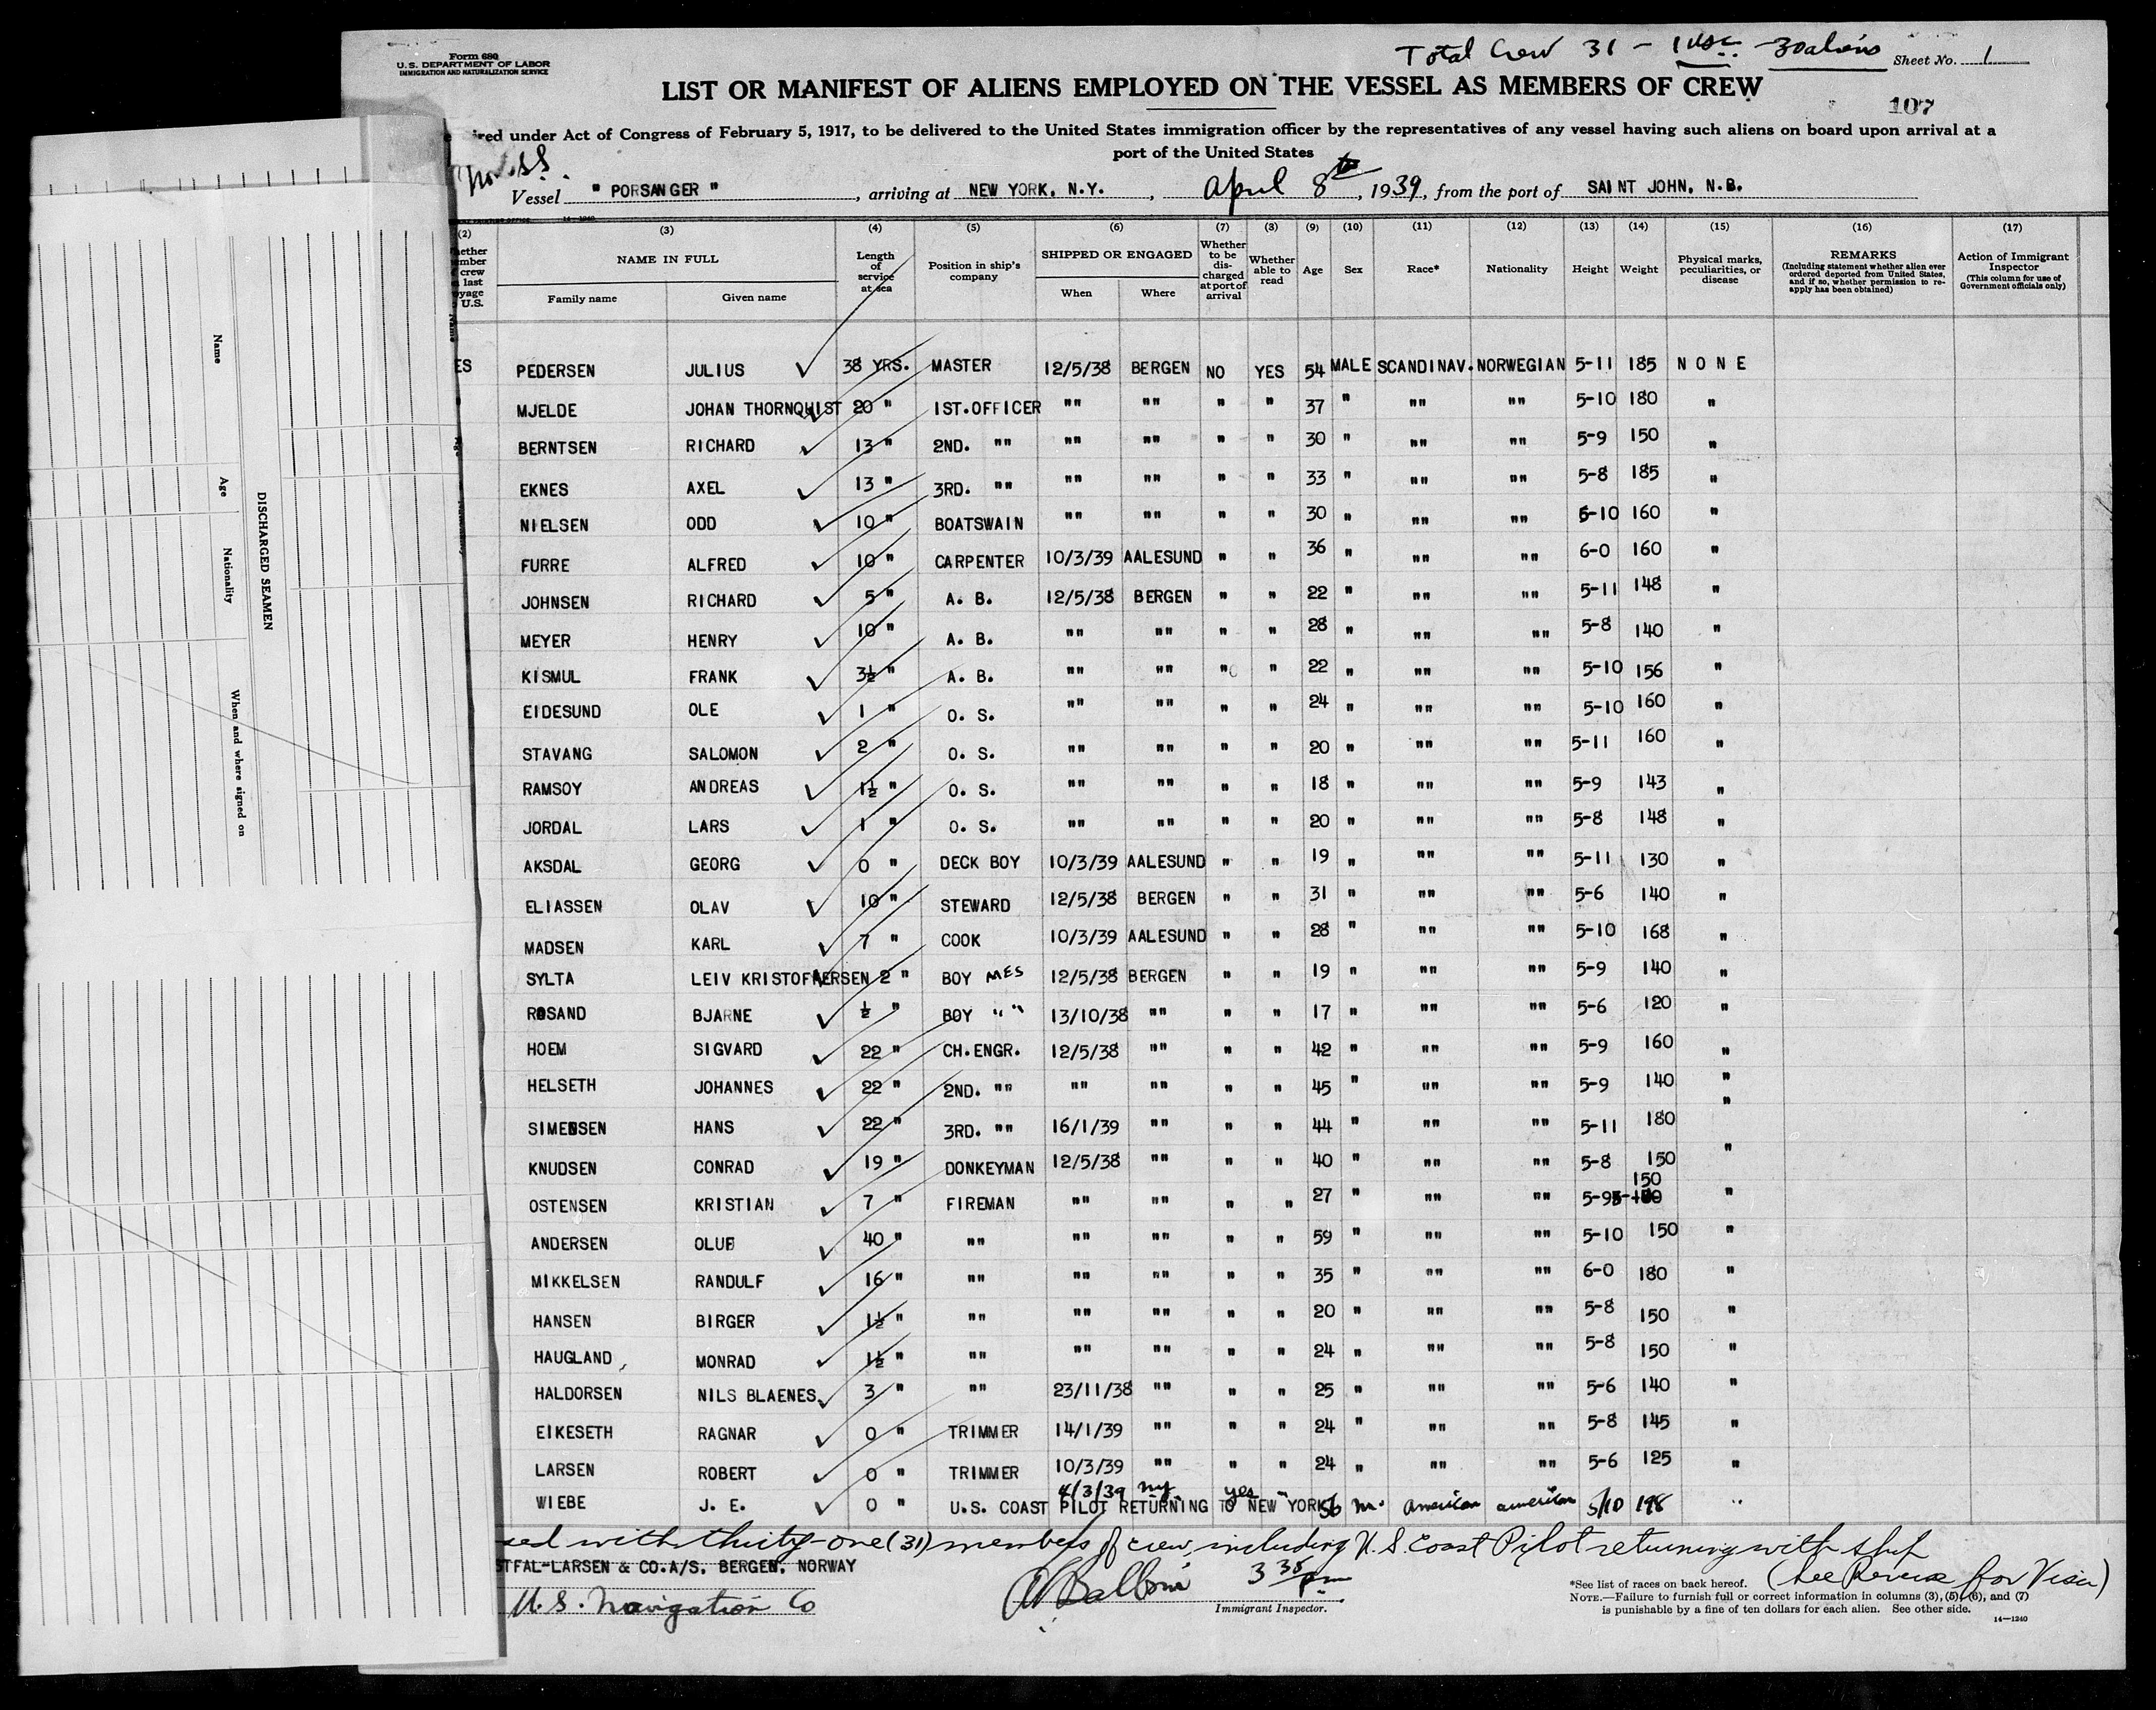 Form 680
U.S. DEPARTMENT OF LABOR
IMMIGRATION AND NATURALIZATION SERVICE
Total Crew 31 - 1 USC - 30 aliens
Sheet No. 1
LIST OR MANIFEST OF ALIENS EMPLOYED ON THE VESSEL AS MEMBERS OF CREW
107
ired under Act of Congress of February 5, 1917, to be delivered to the United States immigration officer by the representatives of any vessel having such aliens on board upon arrival at a
port of the United States
Nor. SS.
Vessel " PORSANGER " , arriving at NEW YORK, N.Y. , April 8th , 1939, from the port of SAINT JOHN, N.B.
(2) (3) (4) (5) (6) (7) (8) (9) (10) (11) (12) (13) (14) (15) (16) (17)
hether
ember
crew
last
yage
U.S.
NAME IN FULL
Family name Given name
Length of service at sea
Position in ship's company
SHIPPED OR ENGAGED
When Where
Whether to be discharged at port of arrival
Whether able to read
Age Sex Race* Nationality Height Weight
Physical marks, peculiarities, or disease
REMARKS
(Including statement whether alien ever ordered deported from United States, and if so, whether permission to re-apply has been obtained)
Action of Immigrant Inspector
(This column for use of Government officials only)
ES PEDERSEN JULIUS 38 YRS. MASTER 12/5/38 BERGEN NO YES 54 MALE SCANDINAV. NORWEGIAN 5-11 185 N O N E
" MJELDE JOHAN THORNQUIST 20 " 1ST.OFFICER "" "" " " 37 " "" "" 5-10 180 "
BERNTSEN RICHARD 13 " 2ND. "" "" "" " " 30 " "" "" 5-9 150 "
EKNES AXEL 13 " 3RD. "" "" "" " " 33 " "" "" 5-8 185 "
NIELSEN ODD 10 " BOATSWAIN "" "" " " 30 " "" "" 5-10 160 "
FURRE ALFRED 10 " CARPENTER 10/3/39 AALESUND " " 36 " "" "" 6-0 160 "
JOHNSEN RICHARD 5 " A. B. 12/5/38 BERGEN " " 22 " "" "" 5-11 148 "
MEYER HENRY 10 " A. B. "" "" " " 28 " "" "" 5-8 140 "
KISMUL FRANK 3½ " A. B. "" "" " " 22 " "" "" 5-10 156 "
EIDESUND OLE 1 " O. S. "" "" " " 24 " "" "" 5-10 160 "
STAVANG SALOMON 2 " O. S. "" "" " " 20 " "" "" 5-11 160 "
RAMSOY ANDREAS 1½ " O. S. "" "" " " 18 " "" "" 5-9 143 "
JORDAL LARS 1 " O. S. "" "" " " 20 " "" "" 5-8 148 "
AKSDAL GEORG 0 " DECK BOY 10/3/39 AALESUND " " 19 " "" "" 5-11 130 "
ELIASSEN OLAV 10 " STEWARD 12/5/38 BERGEN " " 31 " "" "" 5-6 140 "
MADSEN KARL 7 " COOK 10/3/39 AALESUND " " 28 " "" "" 5-10 168 "
SYLTA LEIV KRISTOFFERSEN 2 " BOY MES 12/5/38 BERGEN " " 19 " "" "" 5-9 140 "
ROSAND BJARNE ½ " BOY "" 13/10/38 "" " " 17 " "" "" 5-6 120 "
HOEM SIGVARD 22 " CH.ENGR. 12/5/38 "" " " 42 " "" "" 5-9 160 "
HELSETH JOHANNES 22 " 2ND. "" "" "" " " 45 " "" "" 5-9 140 "
SIMENSEN HANS 22 " 3RD. "" 16/1/39 "" " " 44 " "" "" 5-11 180 "
KNUDSEN CONRAD 19 " DONKEYMAN 12/5/38 "" " " 40 " "" "" 5-8 150 "
OSTENSEN KRISTIAN 7 " FIREMAN "" "" " " 27 " "" "" 5-9 150 "
ANDERSEN OLUF 40 " "" "" "" " " 59 " "" "" 5-10 150 "
MIKKELSEN RANDULF 16 " "" "" "" " " 35 " "" "" 6-0 180 "
HANSEN BIRGER 1½ " "" "" "" " " 20 " "" "" 5-8 150 "
HAUGLAND, MONRAD 1½ " "" "" "" " " 24 " "" "" 5-8 150 "
HALDORSEN NILS BLAENES 3 " "" 23/11/38 "" " " 25 " "" "" 5-6 140 "
EIKESETH RAGNAR 0 " TRIMMER 14/1/39 "" " " 24 " "" "" 5-8 145 "
LARSEN ROBERT 0 " TRIMMER 10/3/39 "" " " 24 " "" "" 5-6 125 "
4/3/39 ny. yes "
WIEBE J. E. 0 " U.S. COAST PILOT RETURNING TO NEW YORK 56 m. american american 5/10 198 "
sed with thirty-one (31) members of crew, including U.S. Coast Pilot returning with ship
STFAL-LARSEN & CO.A/S. BERGEN, NORWAY
3 35 pm
(See Reverse for Visa)
U.S. Navigation Co
Immigrant Inspector.
*See list of races on back hereof.
NOTE.—Failure to furnish full or correct information in columns (3), (5), (6), and (7)
is punishable by a fine of ten dollars for each alien. See other side.
14—1240
DISCHARGED SEAMEN
Name
Age
Nationality
When and where signed on